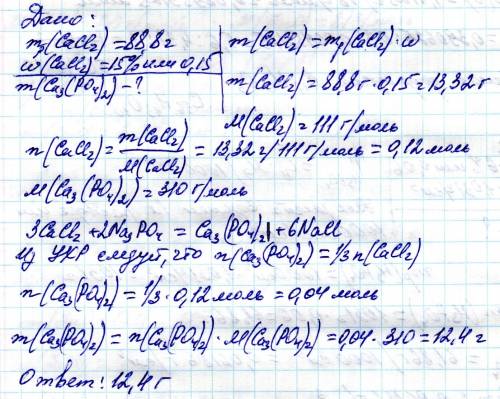 Дано:
mр(CaCl2) = 88,8 г
ω(CaCl2) = 15% или 0,15
m(Ca3(PO4)2) - ?
m(CaCl2) = mр(CaCl2) · ω
m(CaCl2) = 88,8 г · 0,15 = 13,32 г
M(CaCl2) = 111 г/моль
n(CaCl2) = m(CaCl2) / M(CaCl2) = 13,32 г / 111 г/моль = 0,12 моль
M(Ca3(PO4)2) = 310 г/моль
3CaCl2 + 2Na3PO4 = Ca3(PO4)2↓ + 6NaCl
Из УХР следует, что n(Ca3(PO4)2) = 1/3 n(CaCl2)
n(Ca3(PO4)2) = 1/3 · 0,12 моль = 0,04 моль
m(Ca3(PO4)2) = n(Ca3(PO4)2) · M(Ca3(PO4)2) = 0,04 · 310 = 12,4 г
Ответ: 12,4 г